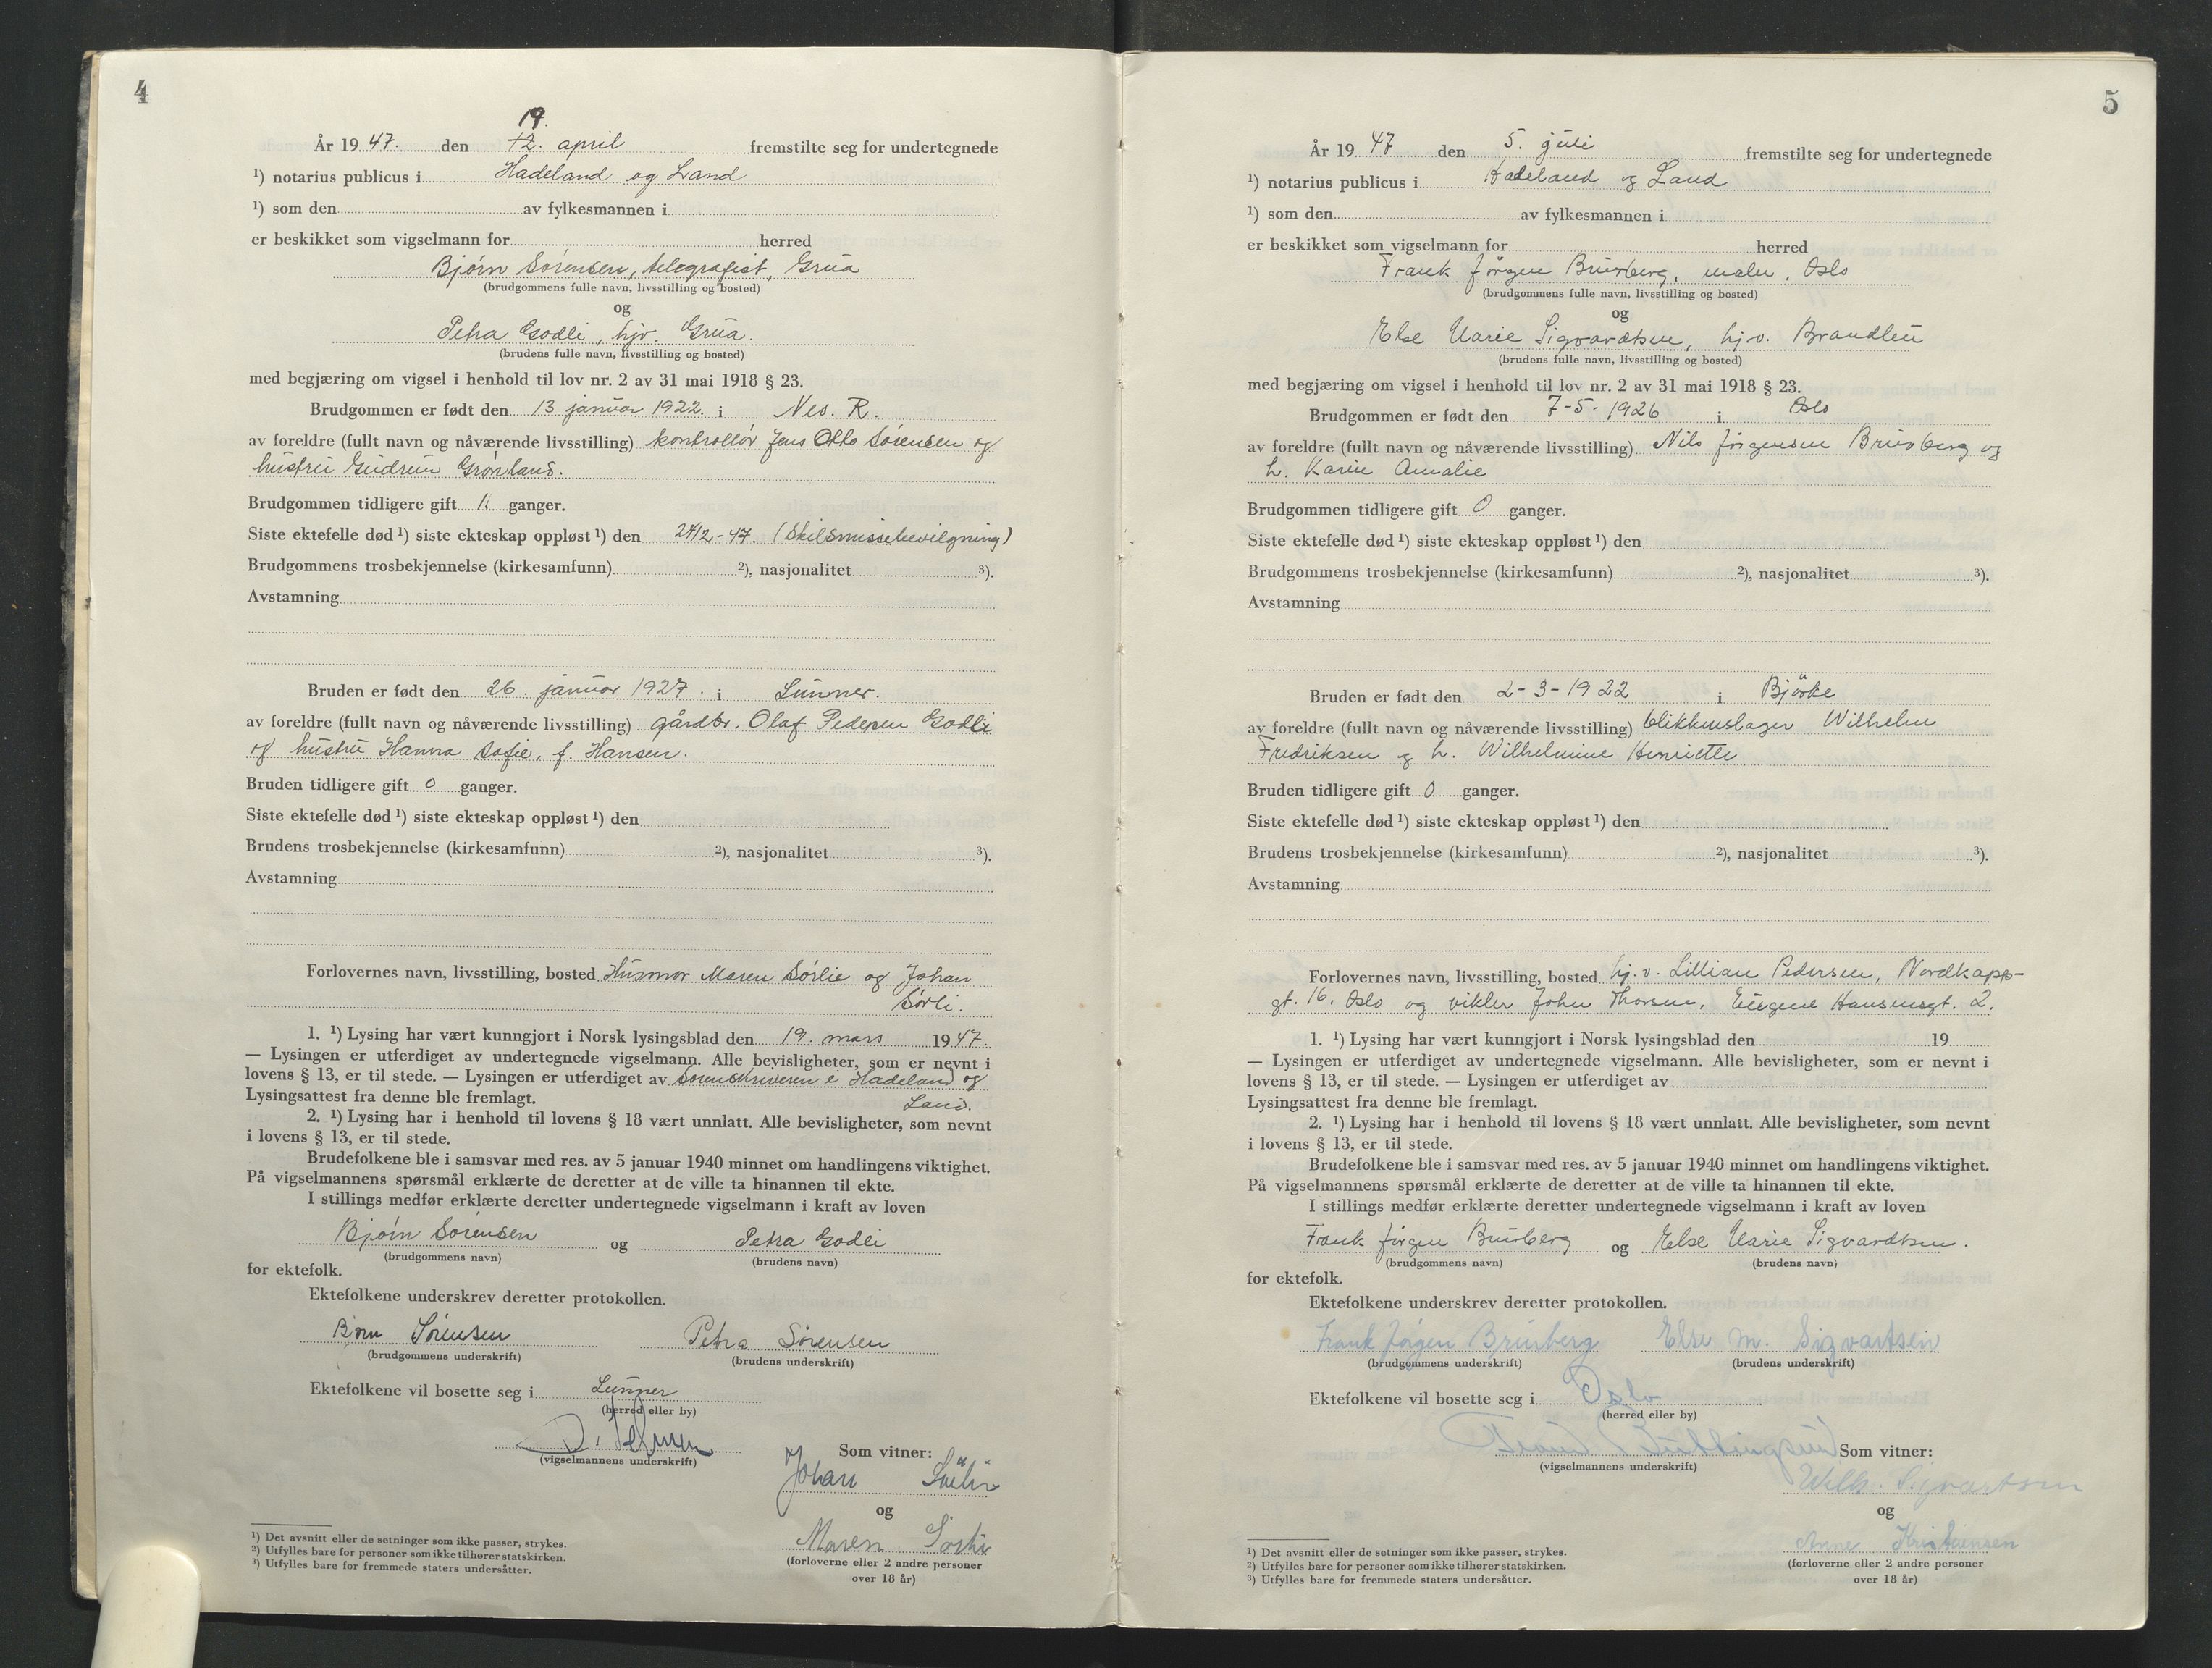 4
19.
År 1947. den 12. april fremstilte seg for undertegnede
¹) notarius publicus i Hadeland og Land
¹) som den av fylkesmannen i
er beskikket som vigselmann for herred
Bjørn Sørensen, telegrafist, Grua
(brudgommens fulle navn, livsstilling og bosted)
og
Petra Godli, hjv. Grua.
(brudens fulle navn, livsstilling og bosted)
med begjæring om vigsel i henhold til lov nr. 2 av 31 mai 1918 § 23.
Brudgommen er født den 13 januar 1922. i Nes. R.
av foreldre (fullt navn og nåværende livsstilling) kontrollør Jens Otto Sørensen og
husfru Gudrun Grønland.
Brudgommen tidligere gift 1. ganger.
Siste ektefelle død ¹) siste ekteskap oppløst ¹) den 24/2-47. (Skilsmissebevilgning)
Brudgommens trosbekjennelse (kirkesamfunn) ²), nasjonalitet ³).
Avstamning
Bruden er født den 26. januar 1927. i Lunner.
av foreldre (fullt navn og nåværende livsstilling) gårdbr. Olaf Pedersen Godli
og hustru Hanna Sofie, f. Hansen.
Bruden tidligere gift 0 ganger.
Siste ektefelle død ¹) siste ekteskap oppløst ¹) den
Brudens trosbekjennelse (kirkesamfunn) ²), nasjonalitet ³).
Avstamning
Forlovernes navn, livsstilling, bosted Husmor Maren Sørlie og Johan
Sørli.
1. ¹) Lysing har vært kunngjort i Norsk lysingsblad den 19. mars 1947.
— Lysingen er utferdiget av undertegnede vigselmann. Alle bevisligheter, som er nevnt i
lovens § 13, er til stede. — Lysingen er utferdiget av Sorenskriveren i Hadeland og
Lysingsattest fra denne ble fremlagt. Land.
2. ¹) Lysing har i henhold til lovens § 18 vært unnlatt. Alle bevisligheter, som nevnt
i lovens § 13, er til stede.
Brudefolkene ble i samsvar med res. av 5 januar 1940 minnet om handlingens viktighet.
På vigselmannens spørsmål erklærte de deretter at de ville ta hinannen til ekte.
I stillings medfør erklærte deretter undertegnede vigselmann i kraft av loven
Bjørn Sørensen og Petra Godli
(brudgommens navn) (brudens navn)
for ektefolk.
Ektefolkene underskrev deretter protokollen.
Bjørn Sørensen Petra Sørensen
(brudgommens underskrift) (brudens underskrift)
Ektefolkene vil bosette seg i Lunner
(herred eller by)
(vigselmannens underskrift)
Som vitner:
Johan Sørli
og
Maren Sørli
(forloverne eller 2 andre personer
over 18 år)
¹) Det avsnitt eller de setninger som ikke passer, strykes.
²) Utfylles bare for personer som ikke tilhører statskirken.
³) Utfylles bare for fremmede staters undersåtter.
5
År 1947 den 5. juli fremstilte seg for undertegnede
¹) notarius publicus i Hadeland og Land
¹) som den av fylkesmannen i
er beskikket som vigselmann for herred
Frank Jörgen Brurberg, maler, Oslo
(brudgommens fulle navn, livsstilling og bosted)
og
Else Marie Sigvardtsen, hj.v. Brandbu
(brudens fulle navn, livsstilling og bosted)
med begjæring om vigsel i henhold til lov nr. 2 av 31 mai 1918 § 23.
Brudgommen er født den 7-5-1926 i Oslo
av foreldre (fullt navn og nåværende livsstilling) Nils Jörgensen Brurberg og
h. Karin Amalie
Brudgommen tidligere gift 0 ganger.
Siste ektefelle død ¹) siste ekteskap oppløst ¹) den
Brudgommens trosbekjennelse (kirkesamfunn) ²), nasjonalitet ³).
Avstamning
Bruden er født den 2-3-1922 i Björke
av foreldre (fullt navn og nåværende livsstilling) blikkenslager Wilhelm
Fredriksen og h. Wilhelmine Henriette
Bruden tidligere gift 0 ganger.
Siste ektefelle død ¹) siste ekteskap oppløst ¹) den
Brudens trosbekjennelse (kirkesamfunn) ²), nasjonalitet ³).
Avstamning
Forlovernes navn, livsstilling, bosted hj.v. Lillian Pedersen, Nordkapp-
gt. 16, Oslo og vikler John Thorsen, Eugene Hansensgt. 2.
1. ¹) Lysing har vært kunngjort i Norsk lysingsblad den 19
— Lysingen er utferdiget av undertegnede vigselmann. Alle bevisligheter, som er nevnt i
lovens § 13, er til stede. — Lysingen er utferdiget av
Lysingsattest fra denne ble fremlagt.
2. ¹) Lysing har i henhold til lovens § 18 vært unnlatt. Alle bevisligheter, som nevnt
i lovens § 13, er til stede.
Brudefolkene ble i samsvar med res. av 5 januar 1940 minnet om handlingens viktighet.
På vigselmannens spørsmål erklærte de deretter at de ville ta hinannen til ekte.
I stillings medfør erklærte deretter undertegnede vigselmann i kraft av loven
Frank Jörgen Brurberg og Else Marie Sigvardtsen.
(brudgommens navn) (brudens navn)
for ektefolk.
Ektefolkene underskrev deretter protokollen.
Frank Jörgen Brurberg Else M. Sigvartsen
(brudgommens underskrift) (brudens underskrift)
Ektefolkene vil bosette seg i Oslo
(herred eller by)
(vigselmannens underskrift)
Som vitner:
Wilh. Sigvartsen
og
Anne Kristiansen
(forloverne eller 2 andre personer
over 18 år)
¹) Det avsnitt eller de setninger som ikke passer, strykes.
²) Utfylles bare for personer som ikke tilhører statskirken.
³) Utfylles bare for fremmede staters undersåtter.